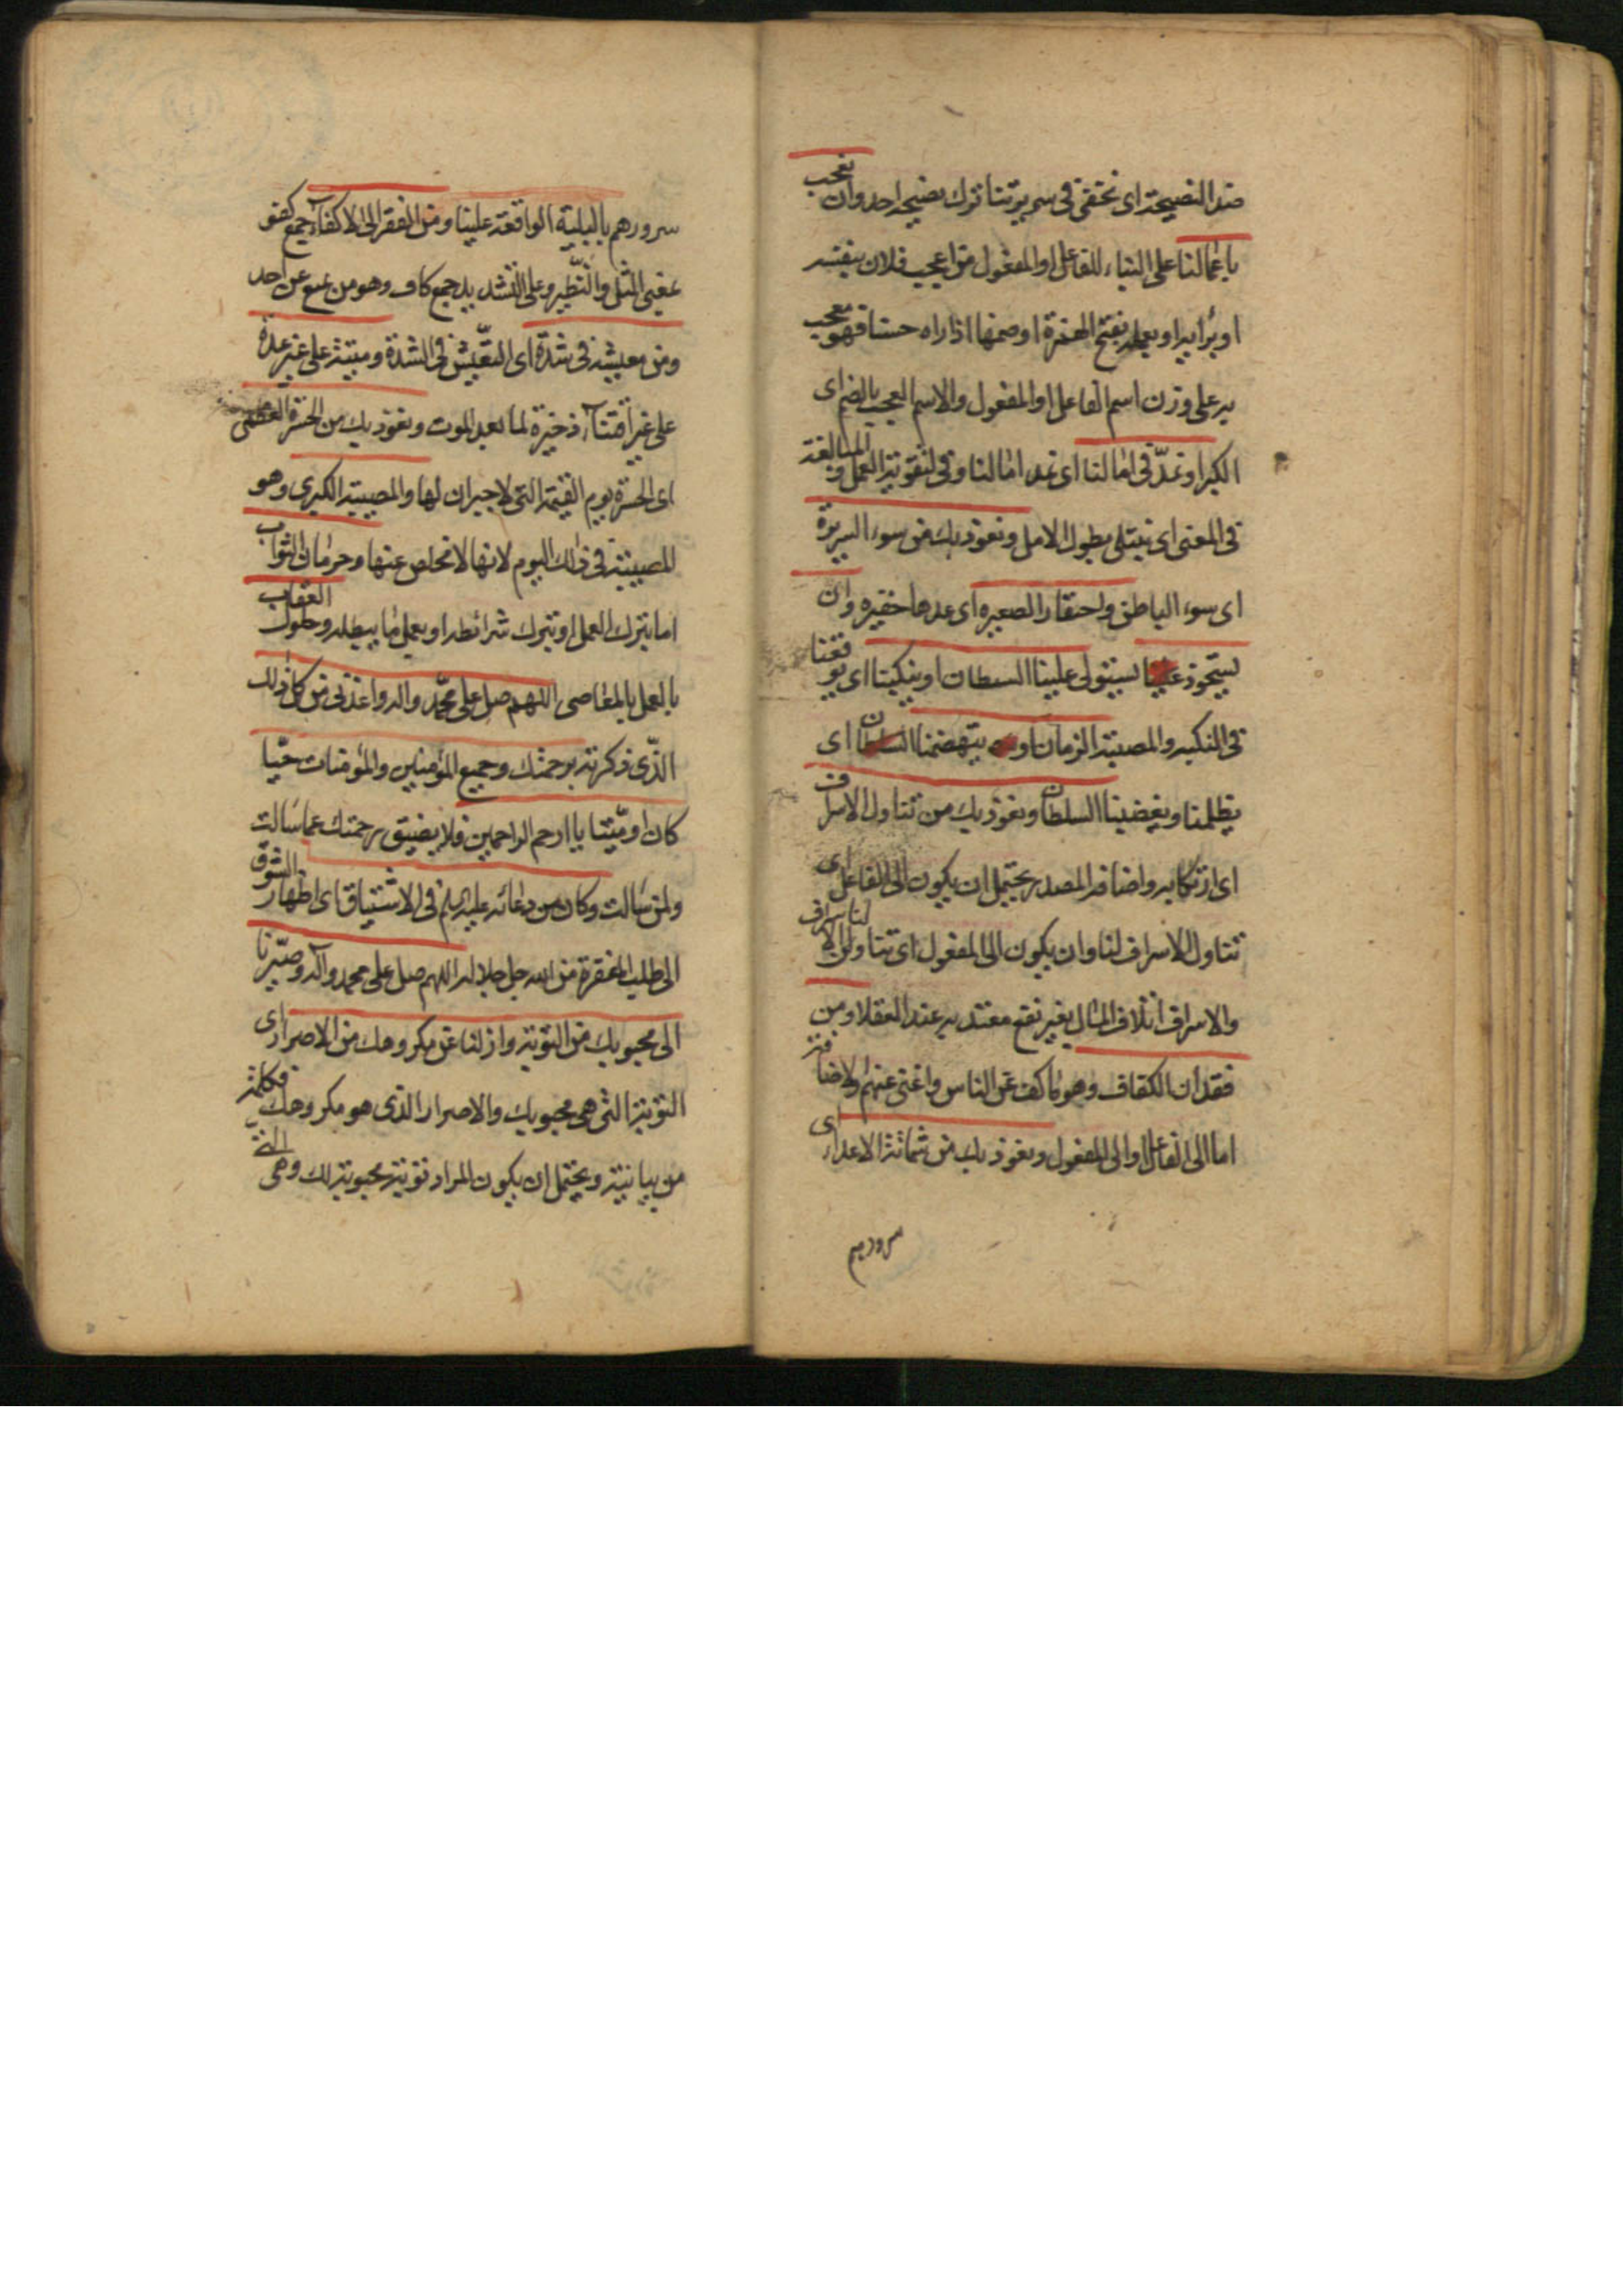 ضد النصيحة اى نخفى فى سريرتنا ترك نصيحة احد وان نعجب
باعمالنا على البناء للفاعل او المفعول من اعجب فلان بنفسه
او برأيه او بعمله بفتح الهمزة او ضمها اذا راه حسنا فهو معجب
به على وزن اسم الفاعل او المفعول والاسم العجب بالضم اى
الكبر او نمدّ فى امالنا اى نمد امالنا وفى لتقوية العمل والمبالغة
فى المعنى اى نبتلى بطول الامل ونعوذ بك من سوء السريرة
اى سوء الباطن واحتقار الصغيره اى عدها حقيره وان
يستحوذ علينا يستولى علينا الشيطان او ينكبنا اى يوقعنا
فى النكبه والمصيبة الزمان او يتهضمنا السلطان اى
يظلمنا ويغضبنا السلطان ونعوذ بك من تناول الاسراف
اى ارتكابه واضافة المصدر يحتمل ان يكون الى الفاعل اى
تناول الاسراف لنا وان يكون الى المفعول اى تناولنا الاسراف
والاسراف اتلاف المال بغير نفع معتد به عند العقلا ومن
فقدان الكفاف وهو ما كف عن الناس واغنى عنهم والاضافة
اما الى الفاعل او الى المفعول ونعوذ بك من شماتة الاعداء اى
سرورهم
سرورهم بالبلية الواقعة علينا ومن الفقر الى الاكفاء جمع كفو
بمعنى المثل والنظير وعلى التشديد جمع كاف وهو من يمنع عن احد
ومن معيشة فى شدة اى التعيّش فى الشدة وميتة على غير عدة
على غير اقتناء ذخيرة لما بعد الموت ونعوذ بك من الحسرة العظمى
اى الحسرة يوم القيمة التى لا جبران لها والمصيبة الكبرى وهو
المصيبة فى ذلك اليوم لانها لا تخلص عنها وحرمان الثواب
اما بترك العمل او بترك شرائطه او بعمل ما يبطله وحلول العقاب
بالعمل بالمعاصى اللهم صل على محمّد واله واعذنى من كل ذلك
الذّى ذكرته برحمتك وجميع المؤمنين والمؤمنات حيّا
كان او ميّتا يا ارحم الراحمين فلا يضيق رحمتك عما سالت
ولمن سالت وكان من دعائه عليه السلم فى الاشتياق اى اظهار الشوق
الى طلب المغفرة من الله جل جلاله اللهم صل على محمد وآله وصيّرنا
الى محبوبك من التوبة وازلنا عن مكروهك من الاصرار اى
التوبة التى هى محبوبك والاصرار الذى هو مكروهك فكلمة
من بيانية ويحتمل ان يكون المراد توبة محبوبة لك وهى التى